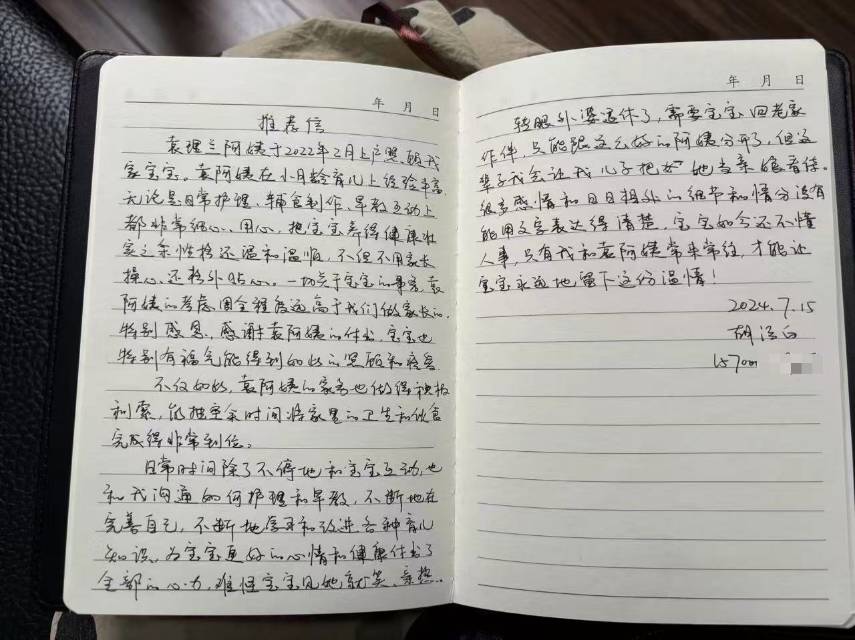 年 月 日
推荐信
袁理兰阿姨于2022年2月上户照顾我
家宝宝。袁阿姨在小月龄育儿上经验丰富,
无论是日常护理、辅食制作、早教互动上
都非常细心、用心,把宝宝养得健康壮
实之余性格还温和温顺,不但不用家长
操心,还格外贴心。一切关于宝宝的事宜,袁
阿姨的考虑周全程度远高于我们做家长的。
特别感恩,感谢袁阿姨的付出,宝宝也
特别有福气能得到如此的照顾和疼爱
不仅如此,袁阿姨的家务也做得很
利索,能抽空余时间将家里的卫生和饮食
完成得非常到位。
日常时间除了不停地和宝宝互动,也
和我沟通如何护理和早教,不断地在
完善自己,不断地学习和改进各种育儿
知识,为宝宝更好的心情和健康付出了
全部的心力,难怪宝宝见她就笑、亲热。
年 月 日
转眼外婆退休了,需要宝宝回老家
作伴,只能跟这么好的阿姨分开了,但这
辈子我会让我儿子把她当亲娘看待。
很多感情和日日相处的细节和情分没有
能用文字表达得清楚,宝宝如今还不懂
人事,只有我和袁阿姨常来常往,才能让
宝宝永远地留下这份温情!
2024.7.15
胡
15700